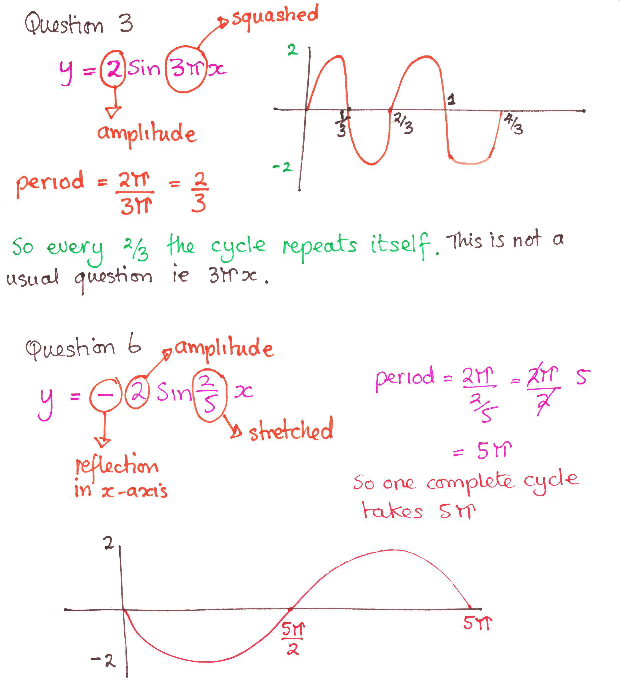 Question 3
squashed
y = 2 Sin 3πx
amplitude
period = 2π/3π = 2/3
2
-2
1/3
2/3
1
4/3
So every 2/3 the cycle repeats itself. This is not a
usual question ie 3πx.
Question 6
amplitude
y = - 2 Sin 2/5 x
stretched
reflection
in x-axis
period = 2π/(2/5) = 2π/2 5
= 5π
So one complete cycle
takes 5π
2
-2
5π/2
5π